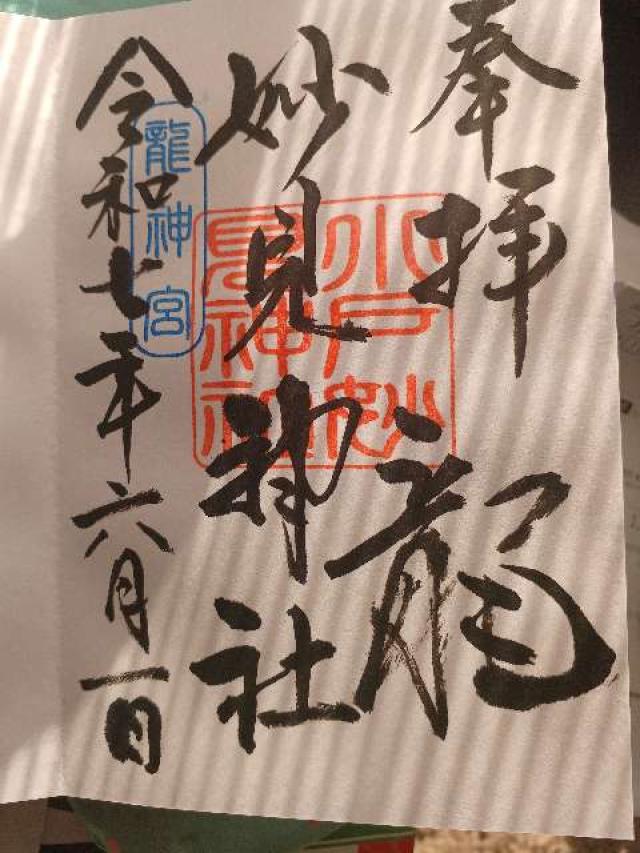 奉拝
龍
妙見神社
水戸妙
見神社
龍神宮
令和七年六月一日